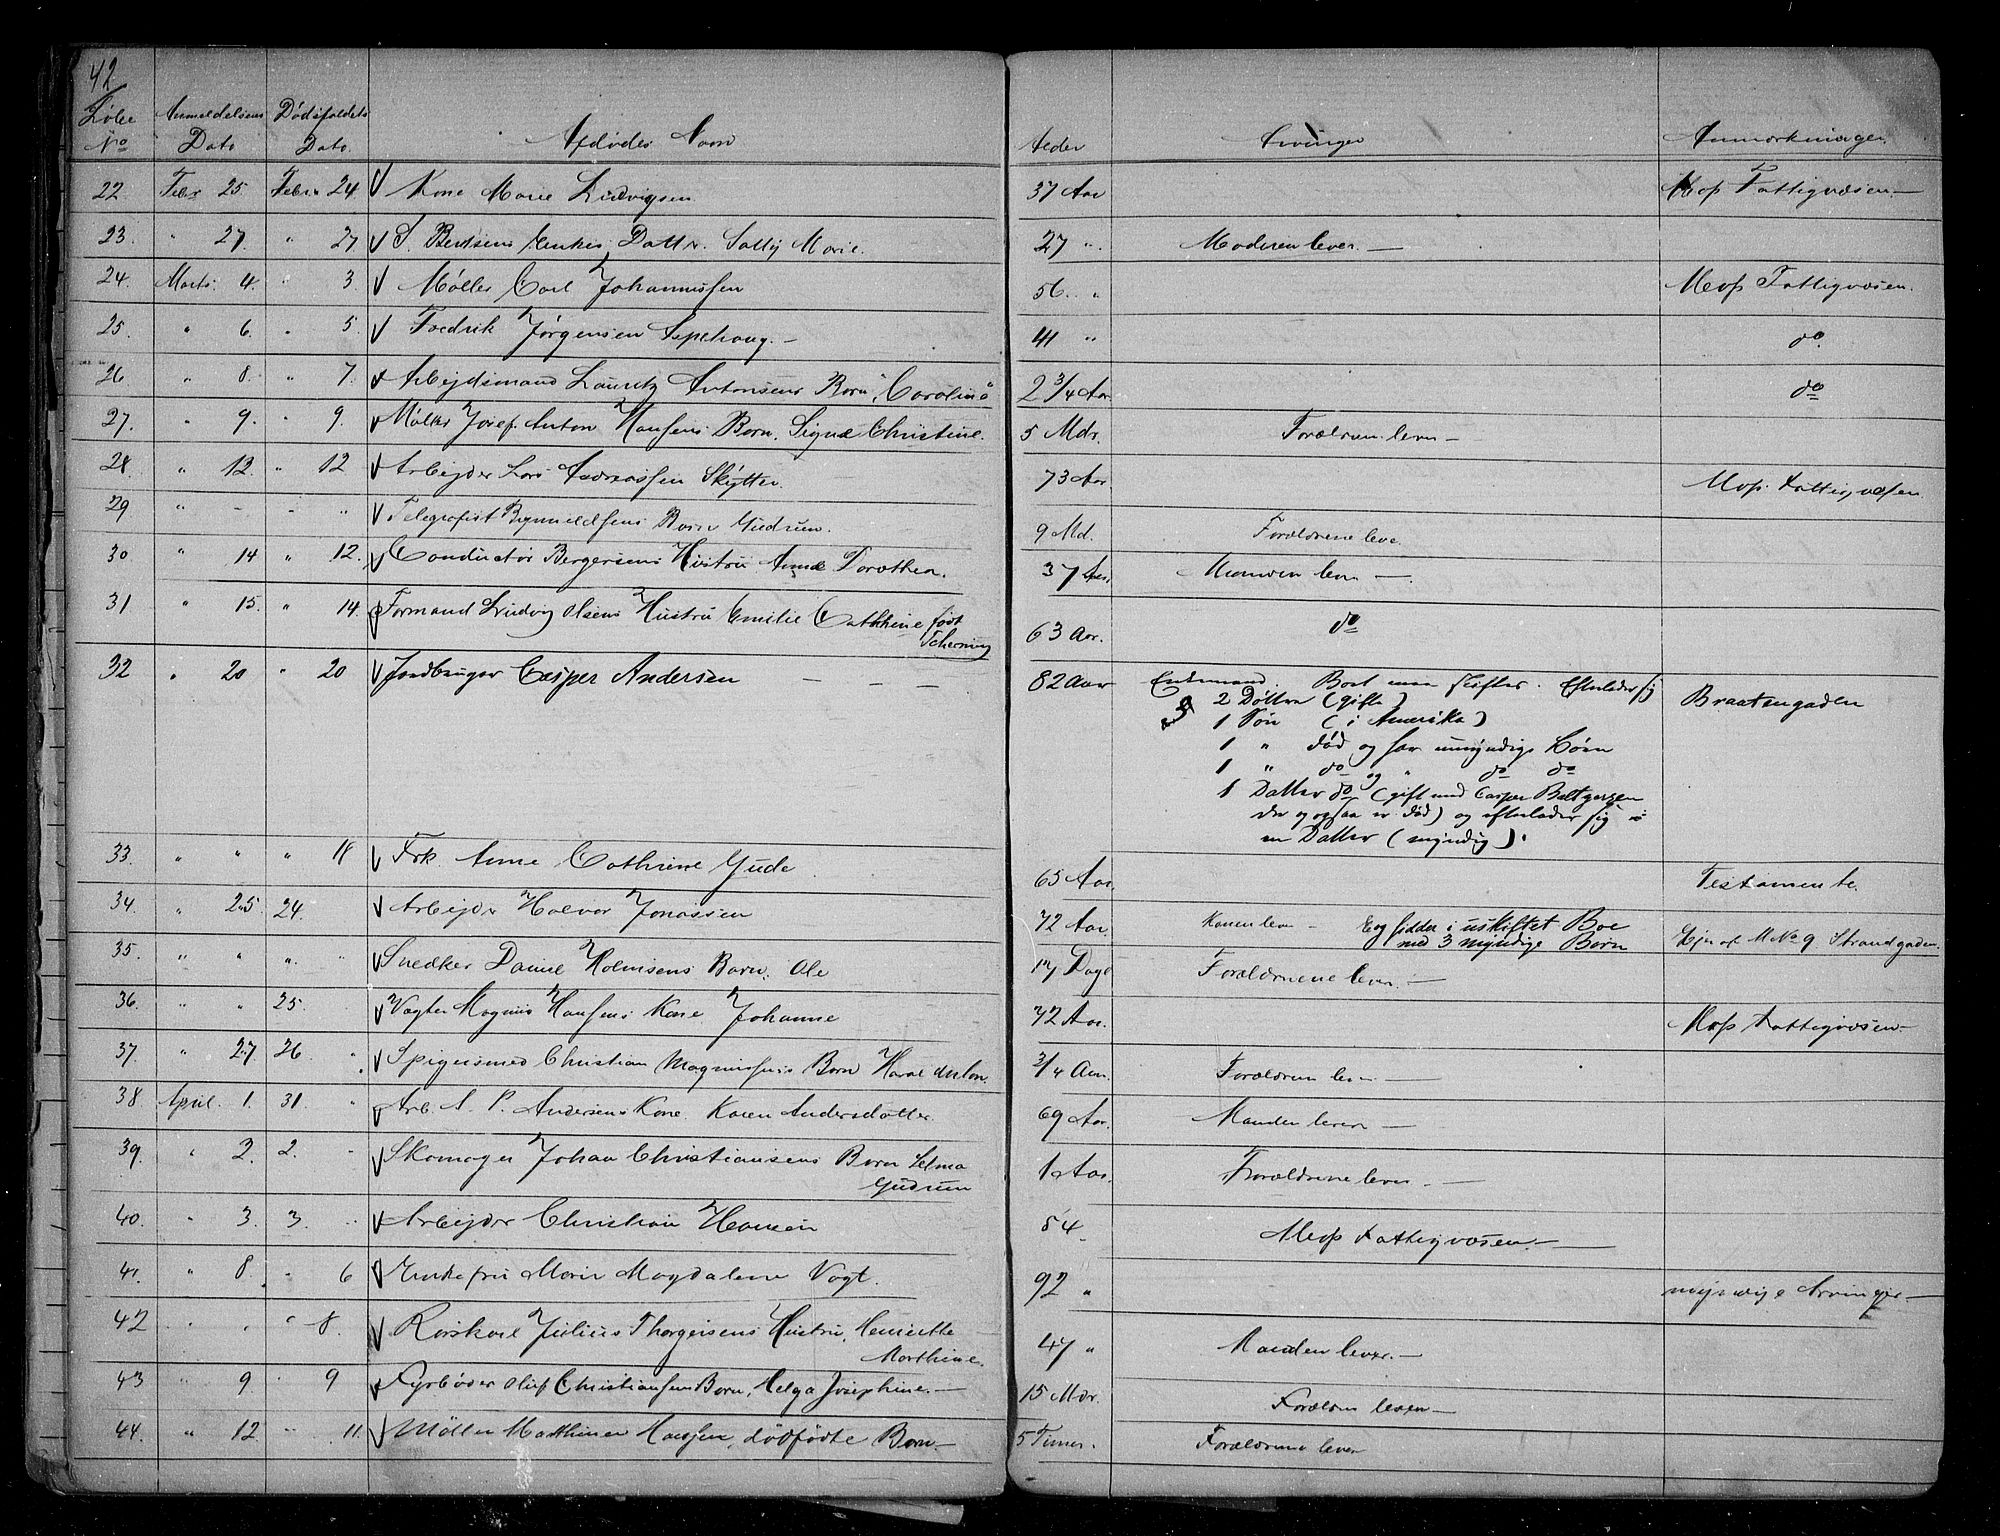 42
Løbe No Anmeldelsens Dato Dødsfaldets Dato. Afdødes Navn Alder Arvinger Anmærkninger.
22. Febr 25 Febr 24 Kone Marie Ludvigsen 37 Aar Mos Fattigvæsen —
23. " 27. " 27 S. Bentsens Enkes Datter. Marie. 27 ". Moderen lever. —
24. Marts. 4. " 3. Møller Carl Johannessen 56. " Mos Fattigvæsen.
25. " 6. " 5. Fredrik Jørgensen — 41 " do.
26 " 8. " 7. Arbejdsmand Lauritz Antonsens Barn, "Caroline" 2 3/4 Aar. do
27. " 9. " 9. Møller Josef Anton Hansens Barn. Signe Christine. 5 Mdr. Forældrene lever —
28 " 12. " 12 Arbejder Lars Andreassen Skytter. 73 Aar Mos. Fattigvæsen
29 " - - " Telegrafist Brynildsens Barn Gudrun. 9 Md. Forældrene leve.
30 " 14 " 12. Conductør Bergersens Hustru. Anne Dorothea. 37 Aar. Manden lever —.
31 " 15. " 14. Formand Ludvig Olsens Hustru Emilie Cathrine født
Scherning 63 Aar. do
32 " 20 " 20 Jordbruger Casper Andersen — — — 82 Aar Enkemand. Boet maa skiftes. Efterlader sig Braatengaden
2 Døttre (gifte)
1 Søn (i Amerika)
1 " død og har umyndige Børn
1 " do og " do do
1 Datter do (gift med Casper Boltgersen
der ogsaa er død) og efterlader sig
en Datter (myndig).
33. " " " 18 Frk. Anne Cathrine Gude. 65 Aar. Testamente.
34. " 25. 24. Arbejder Halvor Jonassen 72 Aar. Konen lever — og sidder i uskiftet Boe
med 3 myndige Børn Ejer af M No 9 Strandgaden.
35. " " ". " Snedker Daniel Holmsens Barn: Ole 17 Dage Forældrenene lever. —
36. " " 25. Vagter Magnus Hansens Kone. Johanne 72 Aar. Mos Fattigvæsen —
37. " 27 26. " Spigersmed Christian Magnussens Barn Haral Anton. 3/4 Aar. Forældrene lever —
38. April. 1. 31. " Arb. A. P. Andersens Kone. Karen Andersdatter. 69 Aar. Manden lever —
39. " 2. 2. " Skomager Johan Christiansens Barn Selma
Gudrun 1 Aar. Forældrene lever. —
40. " 3. 3. " Arbejder Christian Hansen 54 Mos Fattigvæsen. —
41. " 8. " 6 Enkefru Marie Magdalene Vogt. 92 " myndige Arvinger —
42 " . " 8. Rorskarl Julius Thorgersens Hustru, Henriette
Marthine. 47 " Manden lever. —
43 " 9 " 9 Fyrbøder Oluf Christiansens Barn, Helga Josephine. — 15 Mdr. Forældrene lever —
44. " 12 " 11. Møller Marthiner Hansen, dødfødte Barn — 5 Timer. Forældrene lever